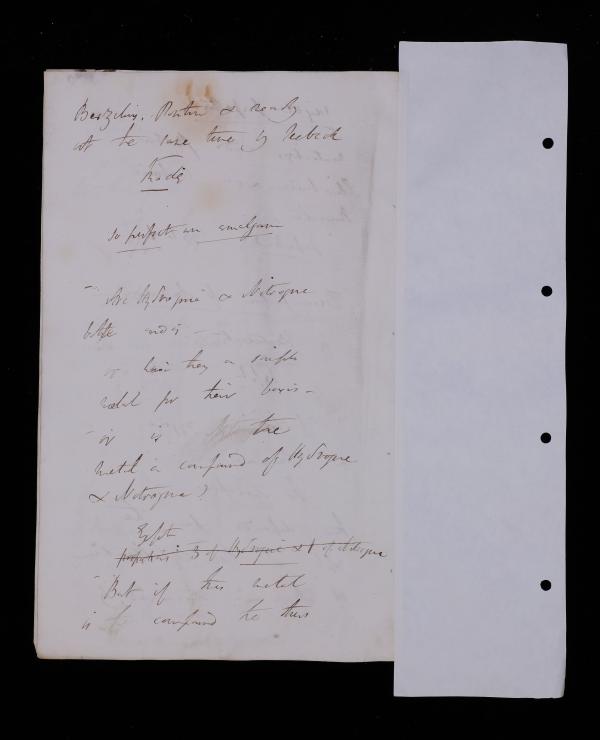 Berzelius, Pontin & nearly
at the same time by Seebeck
so perfect an amalgam
Are Hydrogene & Nitrogene
both
or have they a simple
metal for their basis –
or is the
metal a compound of Hydrogene
& Nitrogene?
3 of Hydrogene & 1 of nitrogene
But if this metal
is compound